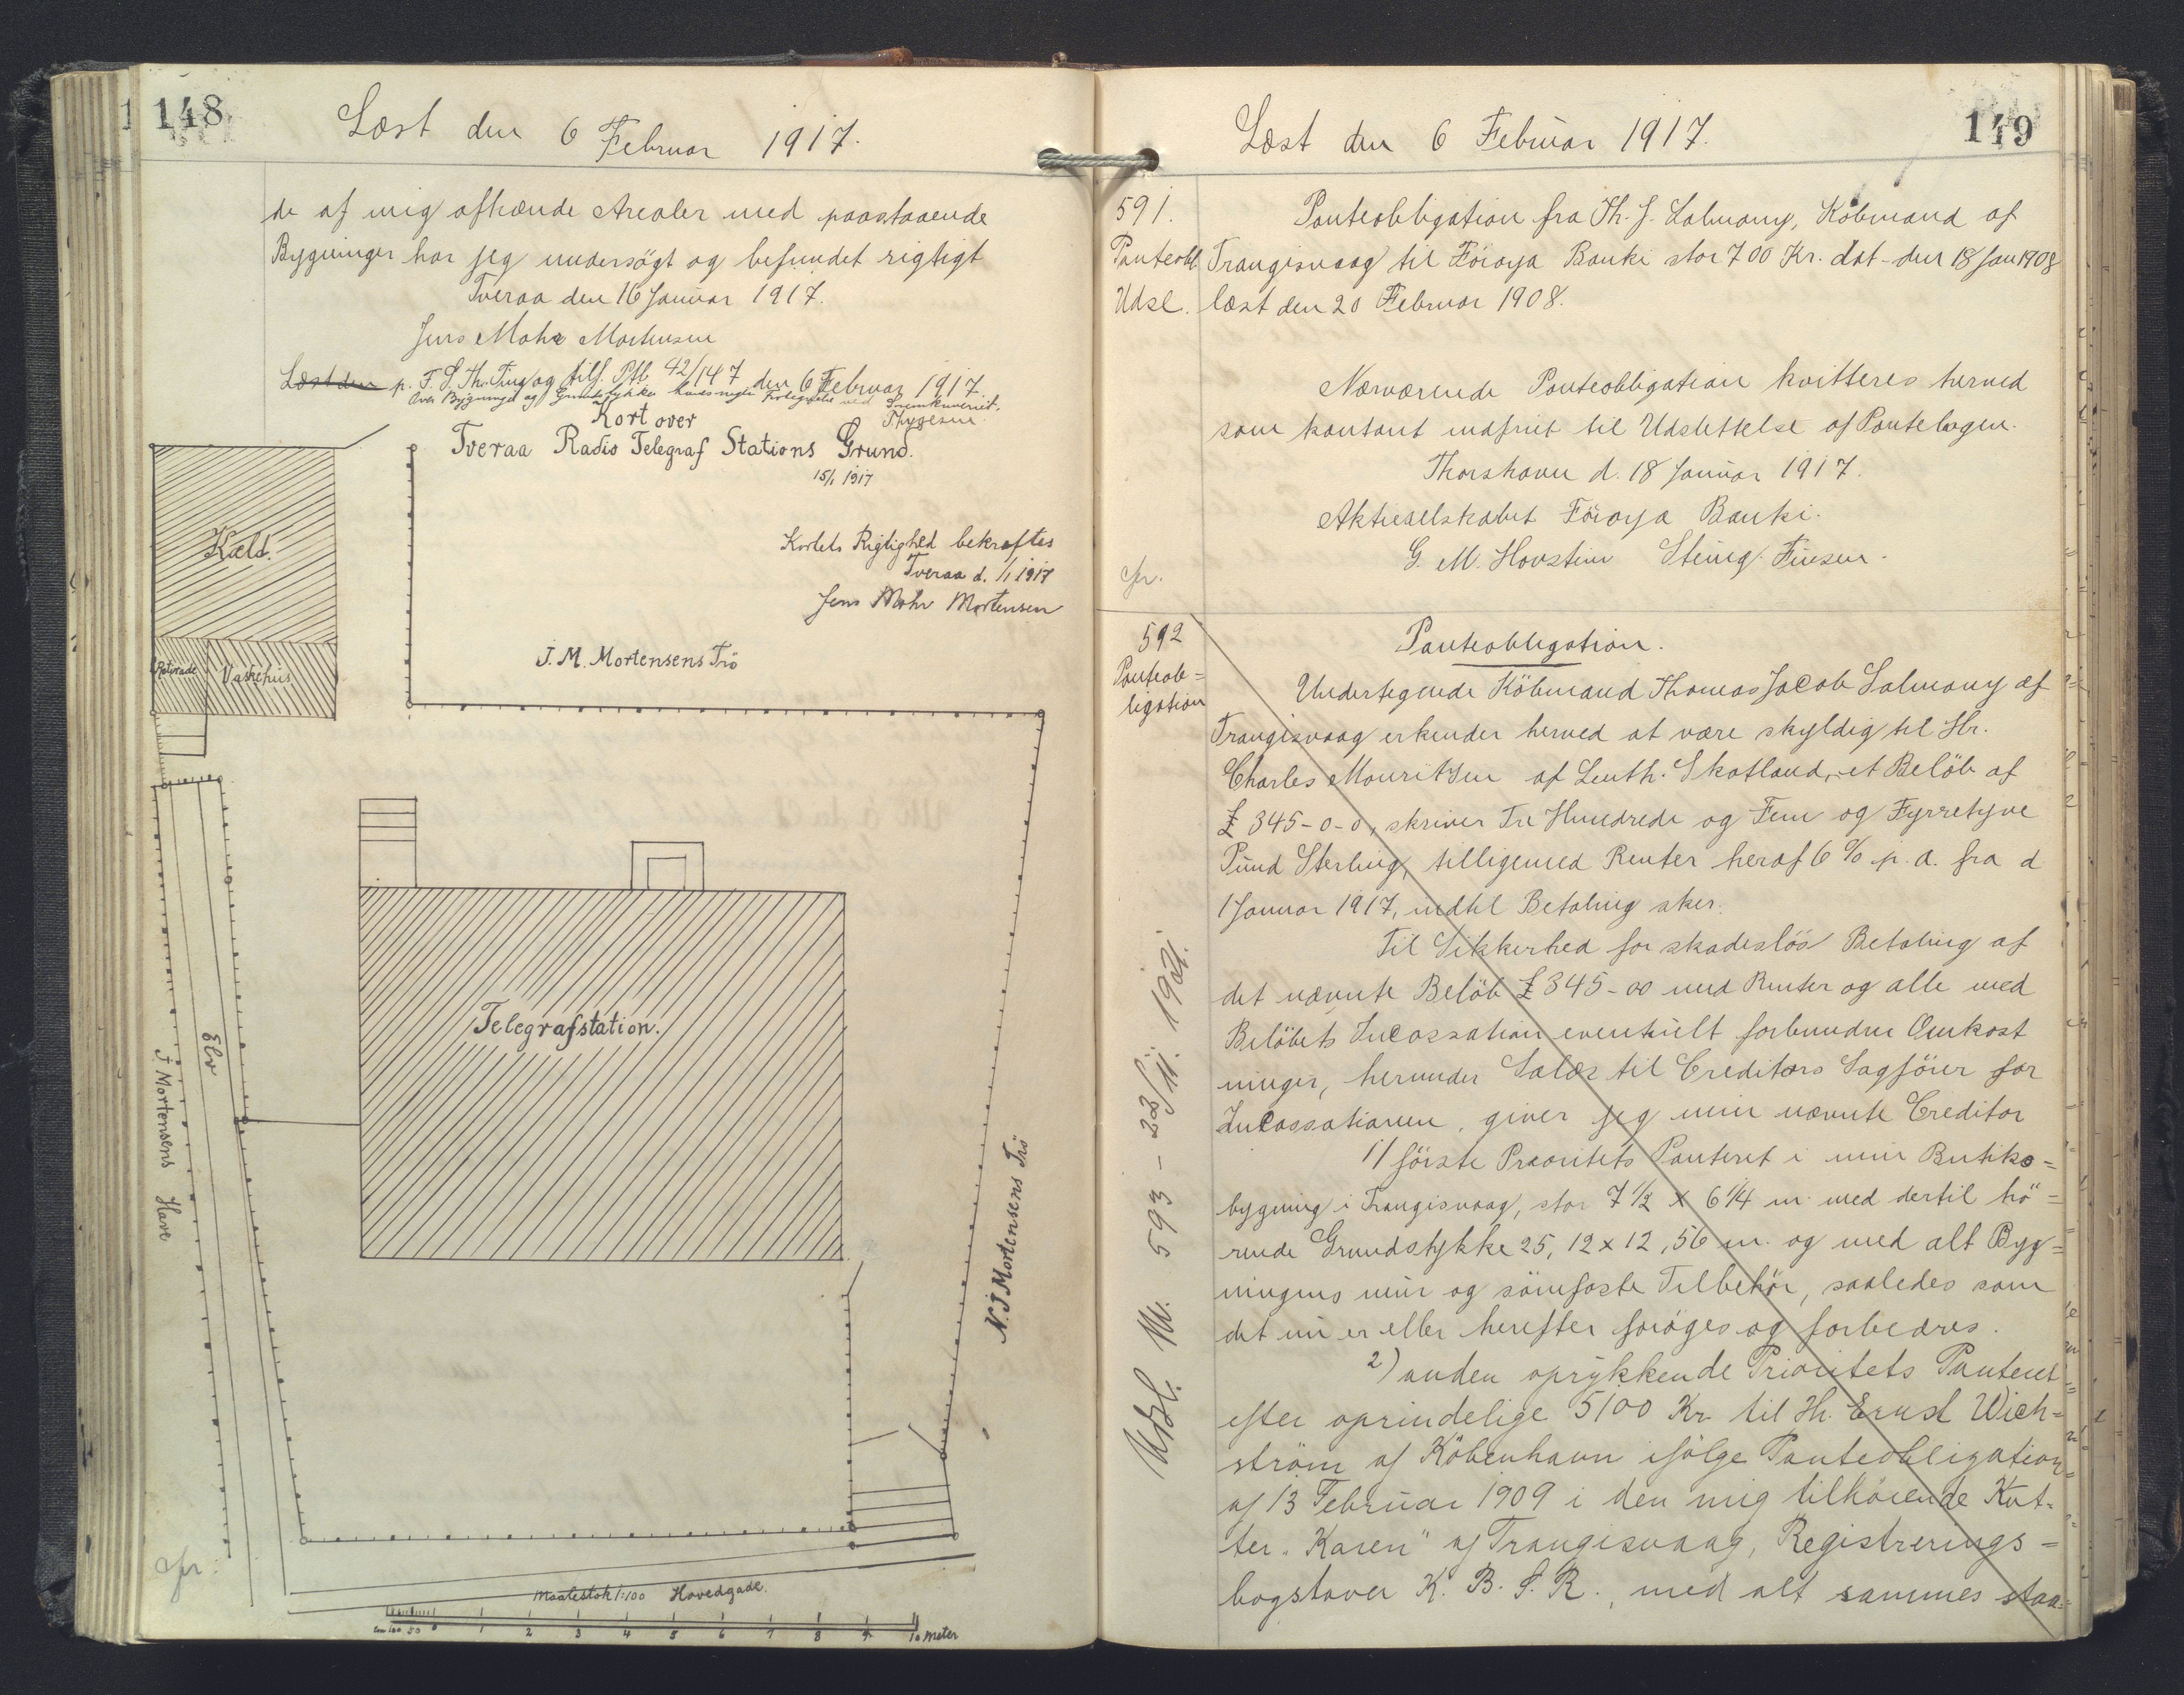 148
Læst den 6 Februar 1917.
de af mig afhænde Arealer med paastaaende
Bygninger har jeg undersögt og befundet rigtigt
Tveraa den 16 Januar 1917.
Jens Mohr Mortensen
Læst den p. F. S. Th. Ting og tilf. Ptb. 42/147 den 6 Februar 1917
Kort over
Tveraa Radio Telegraf Stations Grund.
15/1 1917
Kortets Rigtighed bekræftes
Tveraa d. /1 1917
Jens Mohr Mortensen
Kæld.
Retirade Vaskehus
J. M. Mortensens Trö
Telegrafstation.
Elv
J Mortensens Have
N. J Mortensens Trö
Maalestok 1:100 Hovedgade.
cm 100 50 0 1 2 3 4 5 6 7 8 9 10 Meter
149
Læst den 6 Februar 1917.
591.
Panteobl.
Udsl.
Panteobligation fra Th. J. Salmony, Köbmand af
Trangisvaag til Föroya Banki stor 700 Kr. dat. den 18 Jan 1908
læst den 20 Februar 1908.
Nærværende Panteobligation kvitteres herved
som kontant indfriet til Udslettelse af Pantebogen.
Thorshavn d. 18 Januar 1917.
Aktieselskabet Föroya Banki.
592
Panteob=
ligation
Panteobligation.
Undertegnede Köbmand Thomas Jacob Salmony af
Trangisvaag erkender herved at være skyldig til Hr.
Charles Mouritzen af Leith. Skotland, et Belöb af
£ 345-0-0, skriver Tre Hundrede og Fem og Fyrretyve
Pund Sterling, tilligemed Renter heraf 6 % p. a. fra d
1 Januar 1917, indtil Betaling sker.
Til Sikkerhed for skadeslös Betaling af
det nævnte Belöb £ 345-00 med Renter og alle med
Belöbets Incassation eventuelt forbundne Omkost
ninger, herunder Salær til Creditors Sagförer for
Incassationen, giver jeg min nævnte Creditor
1) förste Prioritets Panteret i min Butiks=
bygning i Trangisvaag, stor 7 1/2 x 6 1/4 m. med dertil hö=
rende Grundstykke 25,12 x 12,56 m. og med alt Byg=
ningens mur og sömfaste Tilbehör, saaledes som
det nu er eller herefter foröges og forbedres.
2) anden oprykkende Prioritets Panteret
efter oprindelige 5100 Kr til Hr. Ernst Wich=
ström af Köbenhavn ifölge Panteobligation
af 13 Februar 1909 i den mig tilhörende Kut-
ter "Karen" af Trangisvaag, Registrerings=
bogstaver K. B. S. R., med alt sammes staa=
Udsl. Nr. 593 - 22/11. 1921.